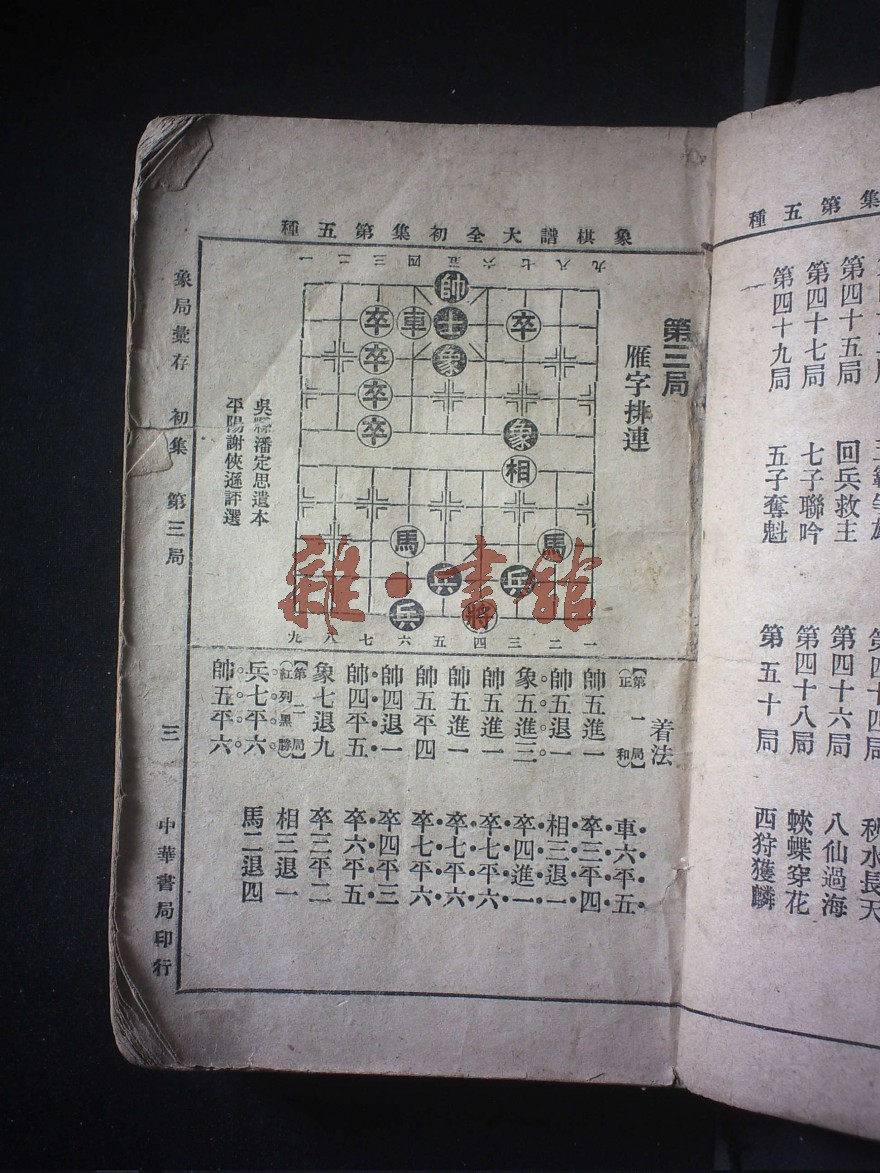 象棋譜大全初集第五種
第三局
雁字排連
九八七六五四三二一
帥
卒車士卒
卒象
卒
卒象
相
馬馬
兵兵
兵將
九八七六五四三二一
吳縣潘定思遺本
平陽謝俠遜評選
着法
【第一局】
(正和)
帥五進一 車六平五
帥五退一 卒三平四
象五進三 相三退一
帥五進一 卒四進一
帥五進一 卒七平六
帥五平四 卒七平六
帥四退一 卒七平六
帥四平五 卒四平三
象七退九 卒六平五
【第二局】
(紅列黑勝)
卒三平二
兵七平六 相三退一
帥五平六 馬二退四
象局彙存 初集 第三局
三
中華書局印行
雜·書館
集第五種
第四十七局 七子聯吟
第四十九局 五子奪魁
第四十五局 回兵救主
第四十六局 八仙過海
第四十八局 蛺蝶穿花
第五十局 西狩獲麟
秋水長天